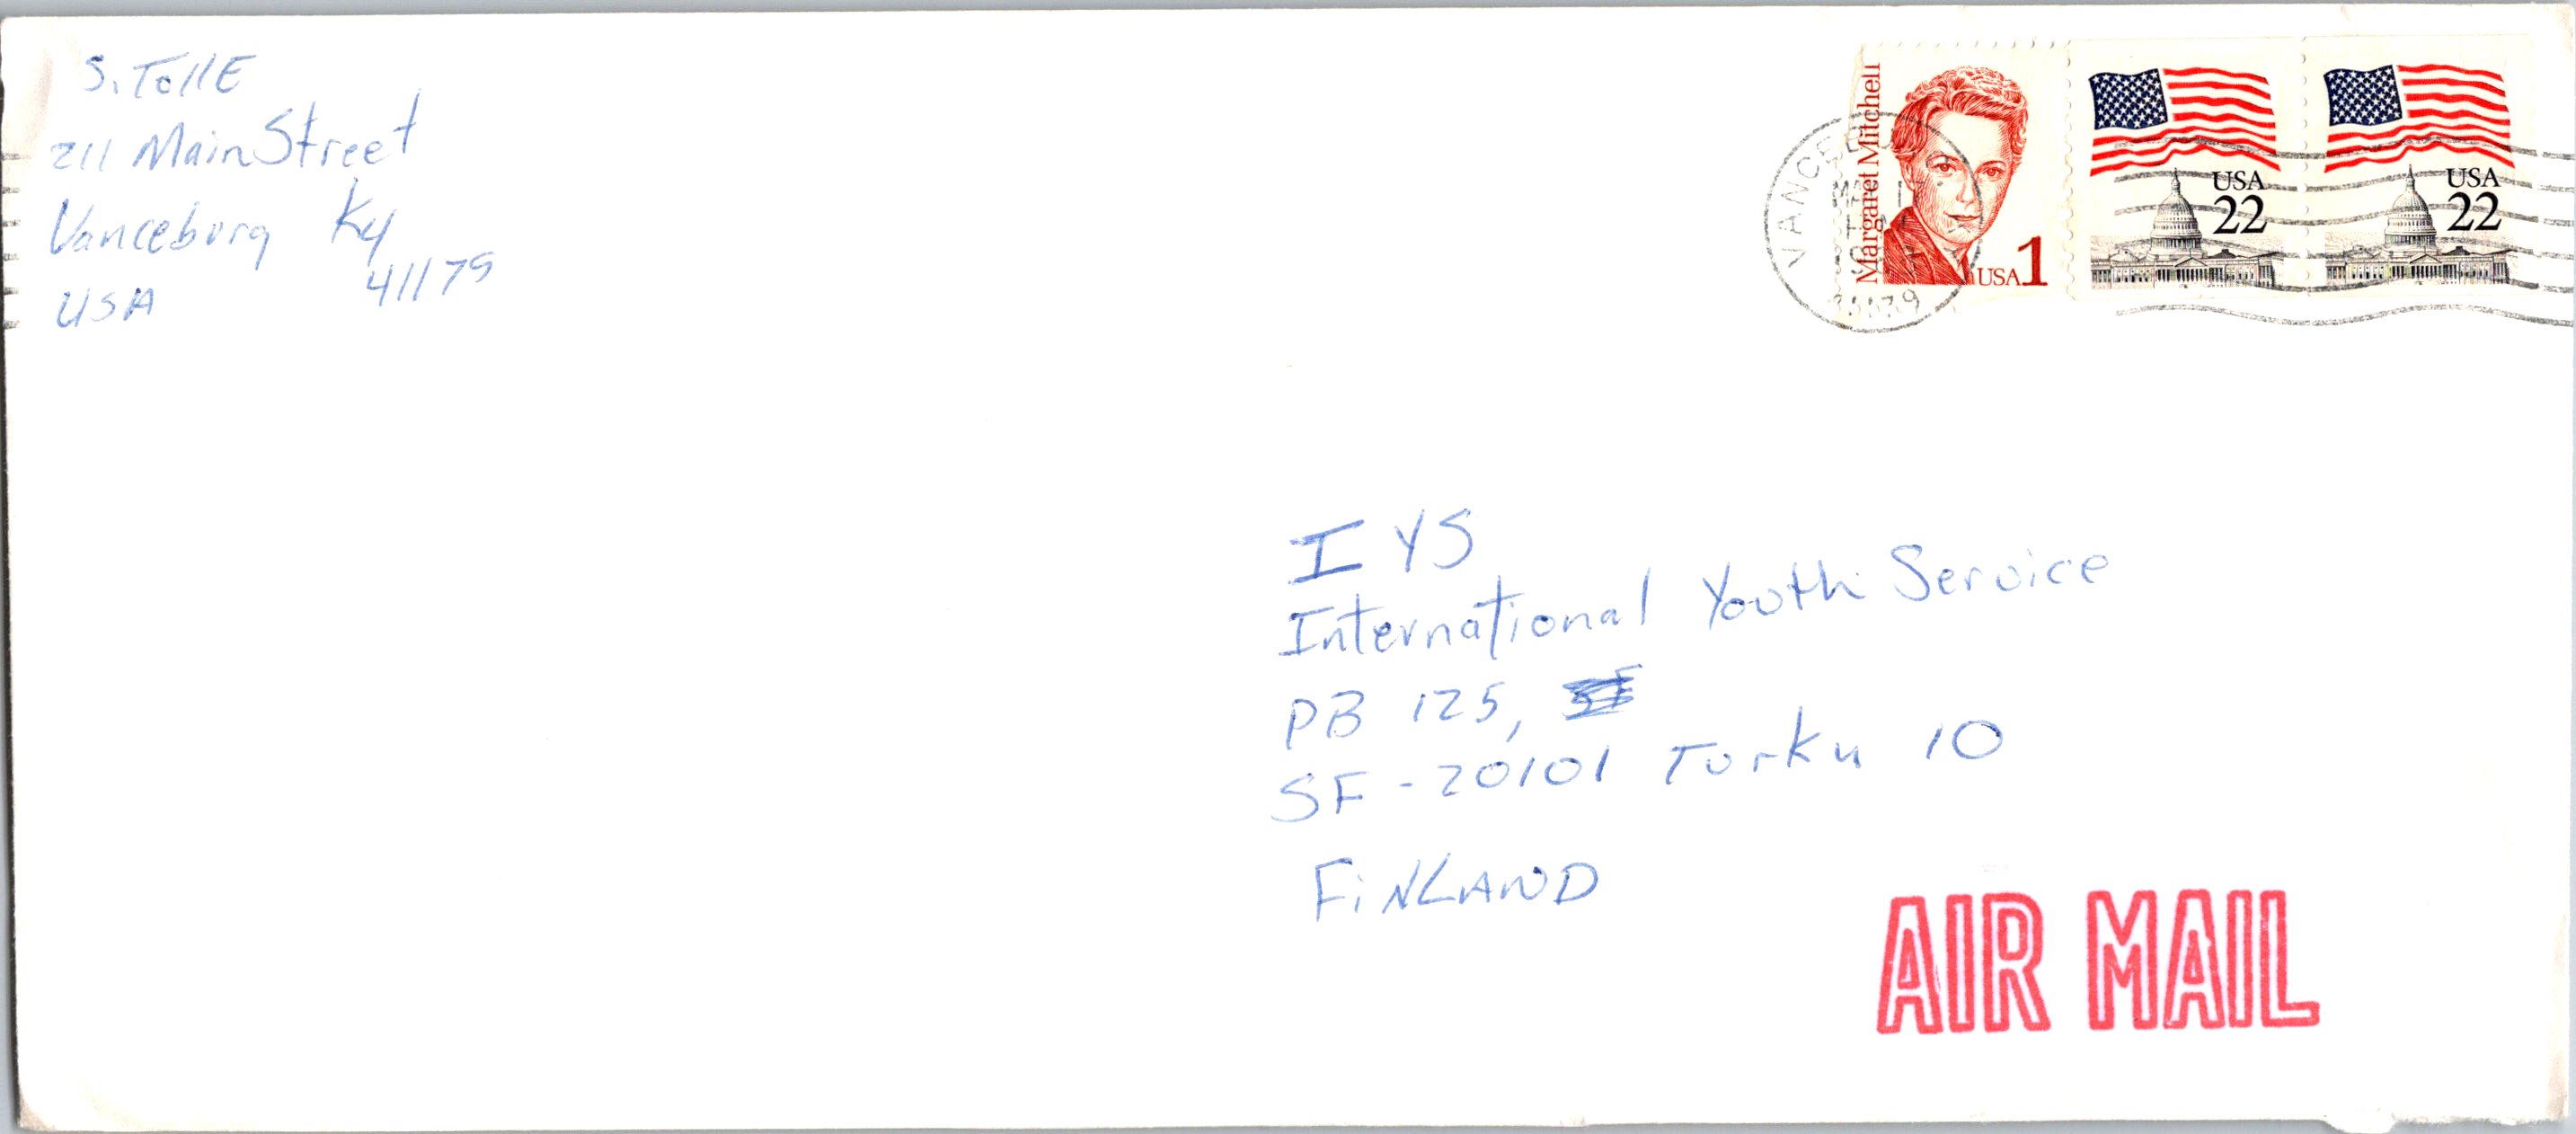 S. TollE
211 Main Street
Vanceburg Ky
41179
USA
Margaret Mitchell
USA 1
USA
22
USA
22
VANCEBU
I YS
International Youth Service
PB 125,
SF - 20101 Turku 10
FiNLAND
AIR MAIL